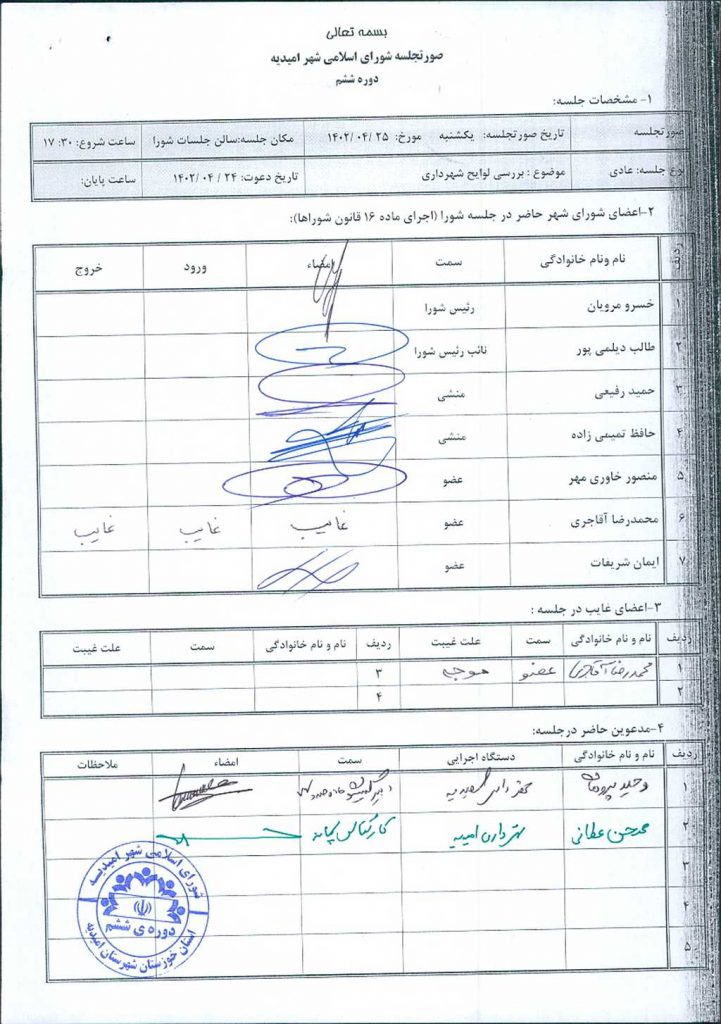 بسمه تعالی
صورتجلسه شورای اسلامی شهر امیدیه
دوره ششم
۱- مشخصات جلسه:
صورتجلسه تاریخ صورتجلسه: یکشنبه مورخ: ۲۵ /۰۴ /۱۴۰۲ مکان جلسه:سالن جلسات شورا ساعت شروع: ۳۰: ۱۷
نوع جلسه: عادی موضوع : بررسی لوایح شهرداری تاریخ دعوت: ۲۴ / ۰۴ /۱۴۰۲ ساعت پایان:
۲-اعضای شورای شهر حاضر در جلسه شورا (اجرای ماده ۱۶ قانون شوراها):
ردیف نام ونام خانوادگی سمت امضاء ورود خروج
۱ خسرو مرویان رئیس شورا
۲ طالب دیلمی پور نائب رئیس شورا
۳ حمید رفیعی منشی
۴ حافظ تمیمی زاده منشی
۵ منصور خاوری مهر عضو
۶ محمدرضا آقاجری عضو غایب غایب غایب
۷ ایمان شریفات عضو
۳-اعضای غایب در جلسه :
ردیف نام و نام خانوادگی سمت علت غیبت ردیف نام و نام خانوادگی سمت علت غیبت
۱ محمدرضا آقاجری عضو موجه ۳
۲ ۴
۴-مدعوین حاضر درجلسه:
ردیف نام و نام خانوادگی دستگاه اجرایی سمت امضاء ملاحظات
۱ وحید
۲ محسن عطائی شهرداری امیدیه
۳
۴
۵
شورای اسلامی شهر امیدیه
دوره ی ششم
استان خوزستان شهرستان امیدیه